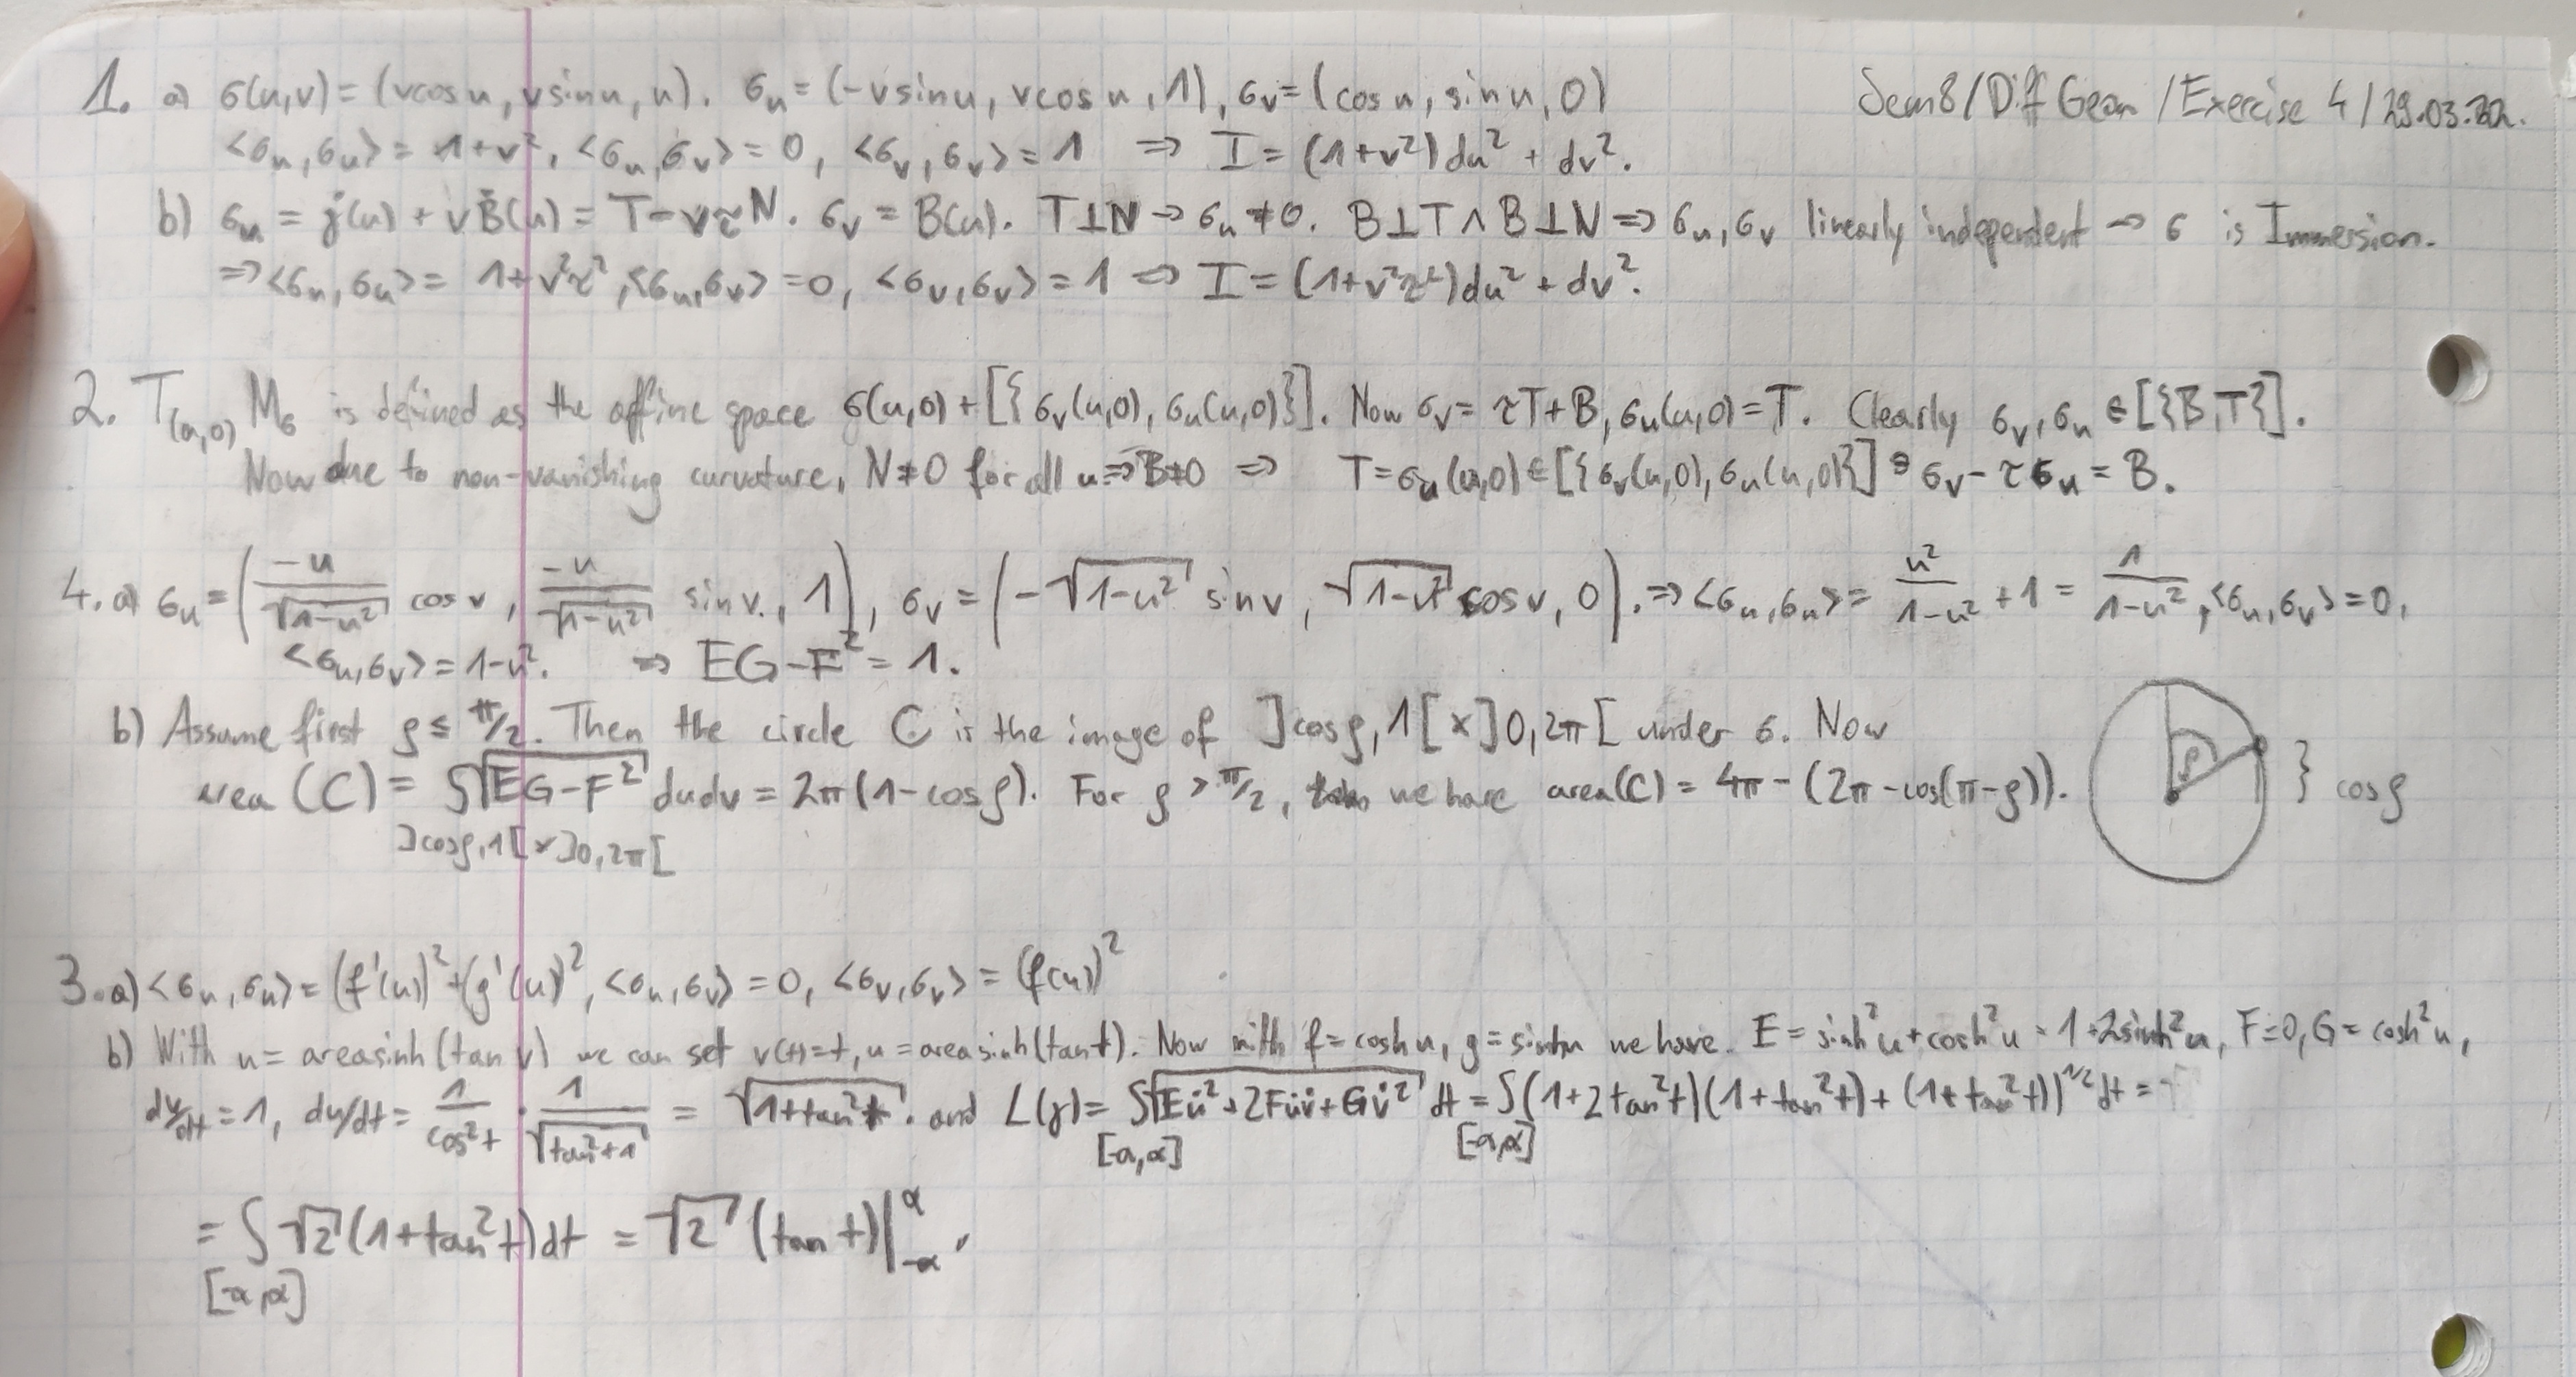 1. a) σ(u,v) = (v cos u, v sin u, u). σᵤ = (-v sin u, v cos u, 1), σᵥ = (cos u, sin u, 0)
Sem8/Diff Geom/Exercise 4/29.03.22.
<σᵤ,σᵤ> = 1+v², <σᵤ,σᵥ> = 0, <σᵥ,σᵥ> = 1 ⇒ I = (1+v²)du² + dv².
b) σᵤ = γ̇(u) + vḂ(u) = T - vτN. σᵥ = B(u). T⊥N → σᵤ ≠ 0. B⊥T ∧ B⊥N ⇒ σᵤ,σᵥ linearly independent → σ is Immersion.
⇒ <σᵤ,σᵤ> = 1+v²τ², <σᵤ,σᵥ> = 0, <σᵥ,σᵥ> = 1 ⇒ I = (1+v²τ²)du² + dv².
2. T₍ᵤ,₀₎ M_σ is defined as the affine space σ(u,0) + [{σᵥ(u,0), σᵤ(u,0)}]. Now σᵥ = τT+B, σᵤ(u,0) = T. Clearly σᵥ,σᵤ ∈ [{B,T}].
Now due to non-vanishing curvature, N≠0 for all u ⇒ B≠0 ⇒ T = σᵤ(u,0) ∈ [{σᵥ(u,0), σᵤ(u,0)}] ∋ σᵥ - τσᵤ = B.
4. a) σᵤ = (-u/√(1-u²) cos v, -u/√(1-u²) sin v, 1), σᵥ = (-√(1-u²) sin v, √(1-u²) cos v, 0). ⇒ <σᵤ,σᵤ> = u²/(1-u²) + 1 = 1/(1-u²), <σᵤ,σᵥ> = 0,
<σᵤ,σᵥ> = 1-u². ⇒ EG-F² = 1.
b) Assume first ρ ≤ π/2. Then the circle C is the image of ]cosρ,1[×]0,2π[ under σ. Now
area (C) = ∫√(EG-F²) dudv = 2π(1-cosρ). For ρ > π/2, we have area(C) = 4π - (2π - cos(π-ρ)).
]cosρ,1[×]0,2π[
ρ } cosρ
3. a) <σᵤ,σᵤ> = (f'(u))² + (g'(u))², <σᵤ,σᵥ> = 0, <σᵥ,σᵥ> = (f(u))²
b) With u = areasinh(tan v) we can set v(t)=t, u = areasinh(tan t). Now with f = cosh u, g = sinh u we have. E = sinh²u + cosh²u = 1+2sinh²u, F=0, G = cosh²u,
dv/dt = 1, du/dt = 1/cos²t · 1/√(tan²+1) = √(1+tan²t). and L(γ) = ∫√(Eu̇²+2Fu̇v̇+Gv̇²) dt = ∫((1+2tan²t)(1+tan²t)+(1+tan²t))^1/2 dt =
[-α,α] [-α,α]
= ∫ √2 (1+tan²t)dt = √2 (tan t)|₋α^α.
[-α,α]